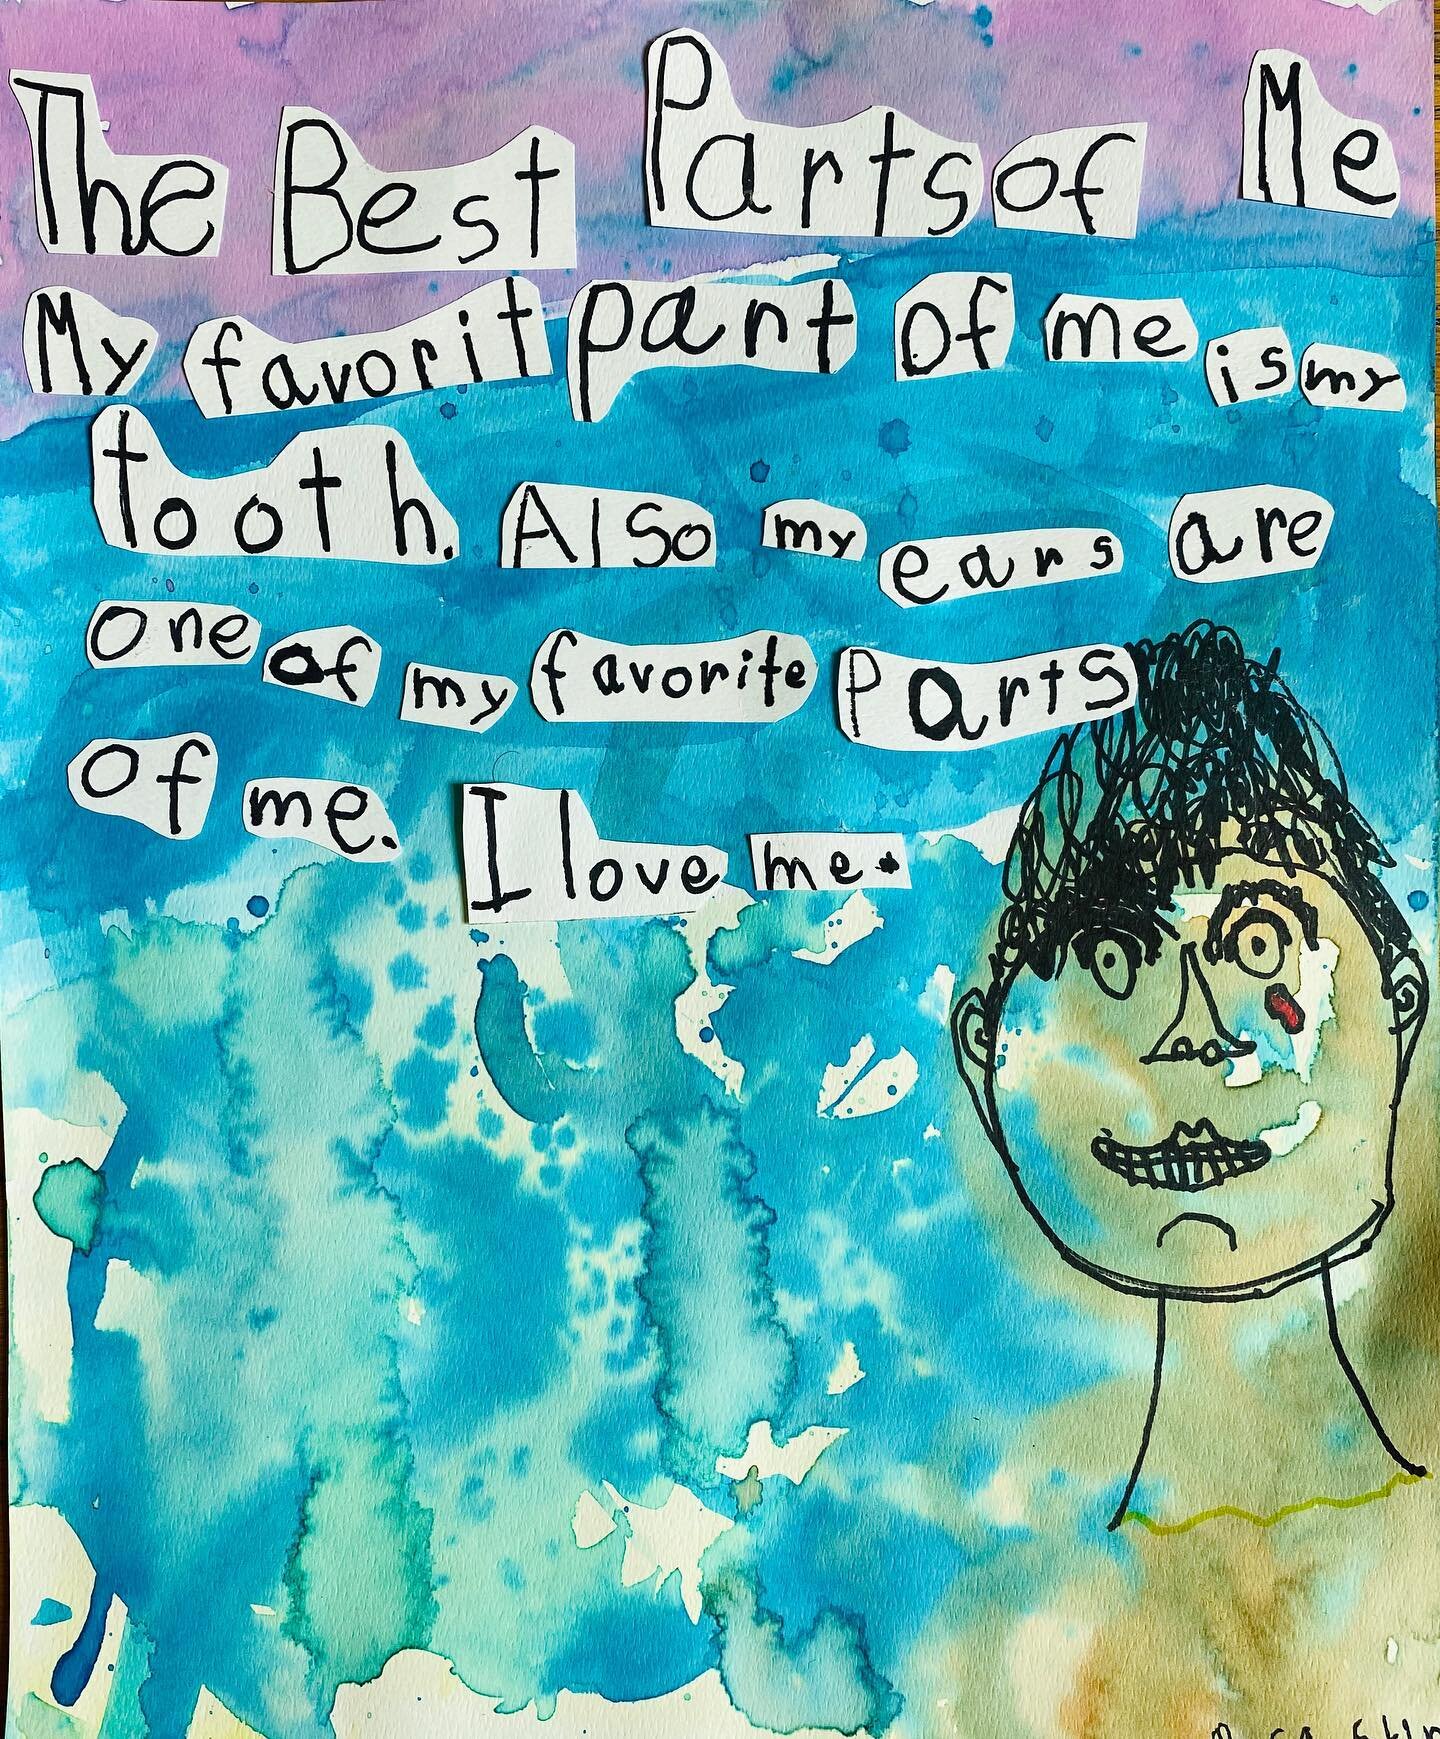 The Best Parts of Me
My favorit part of me is my
tooth. Also my ears are
one of my favorite parts
of me. I love me.